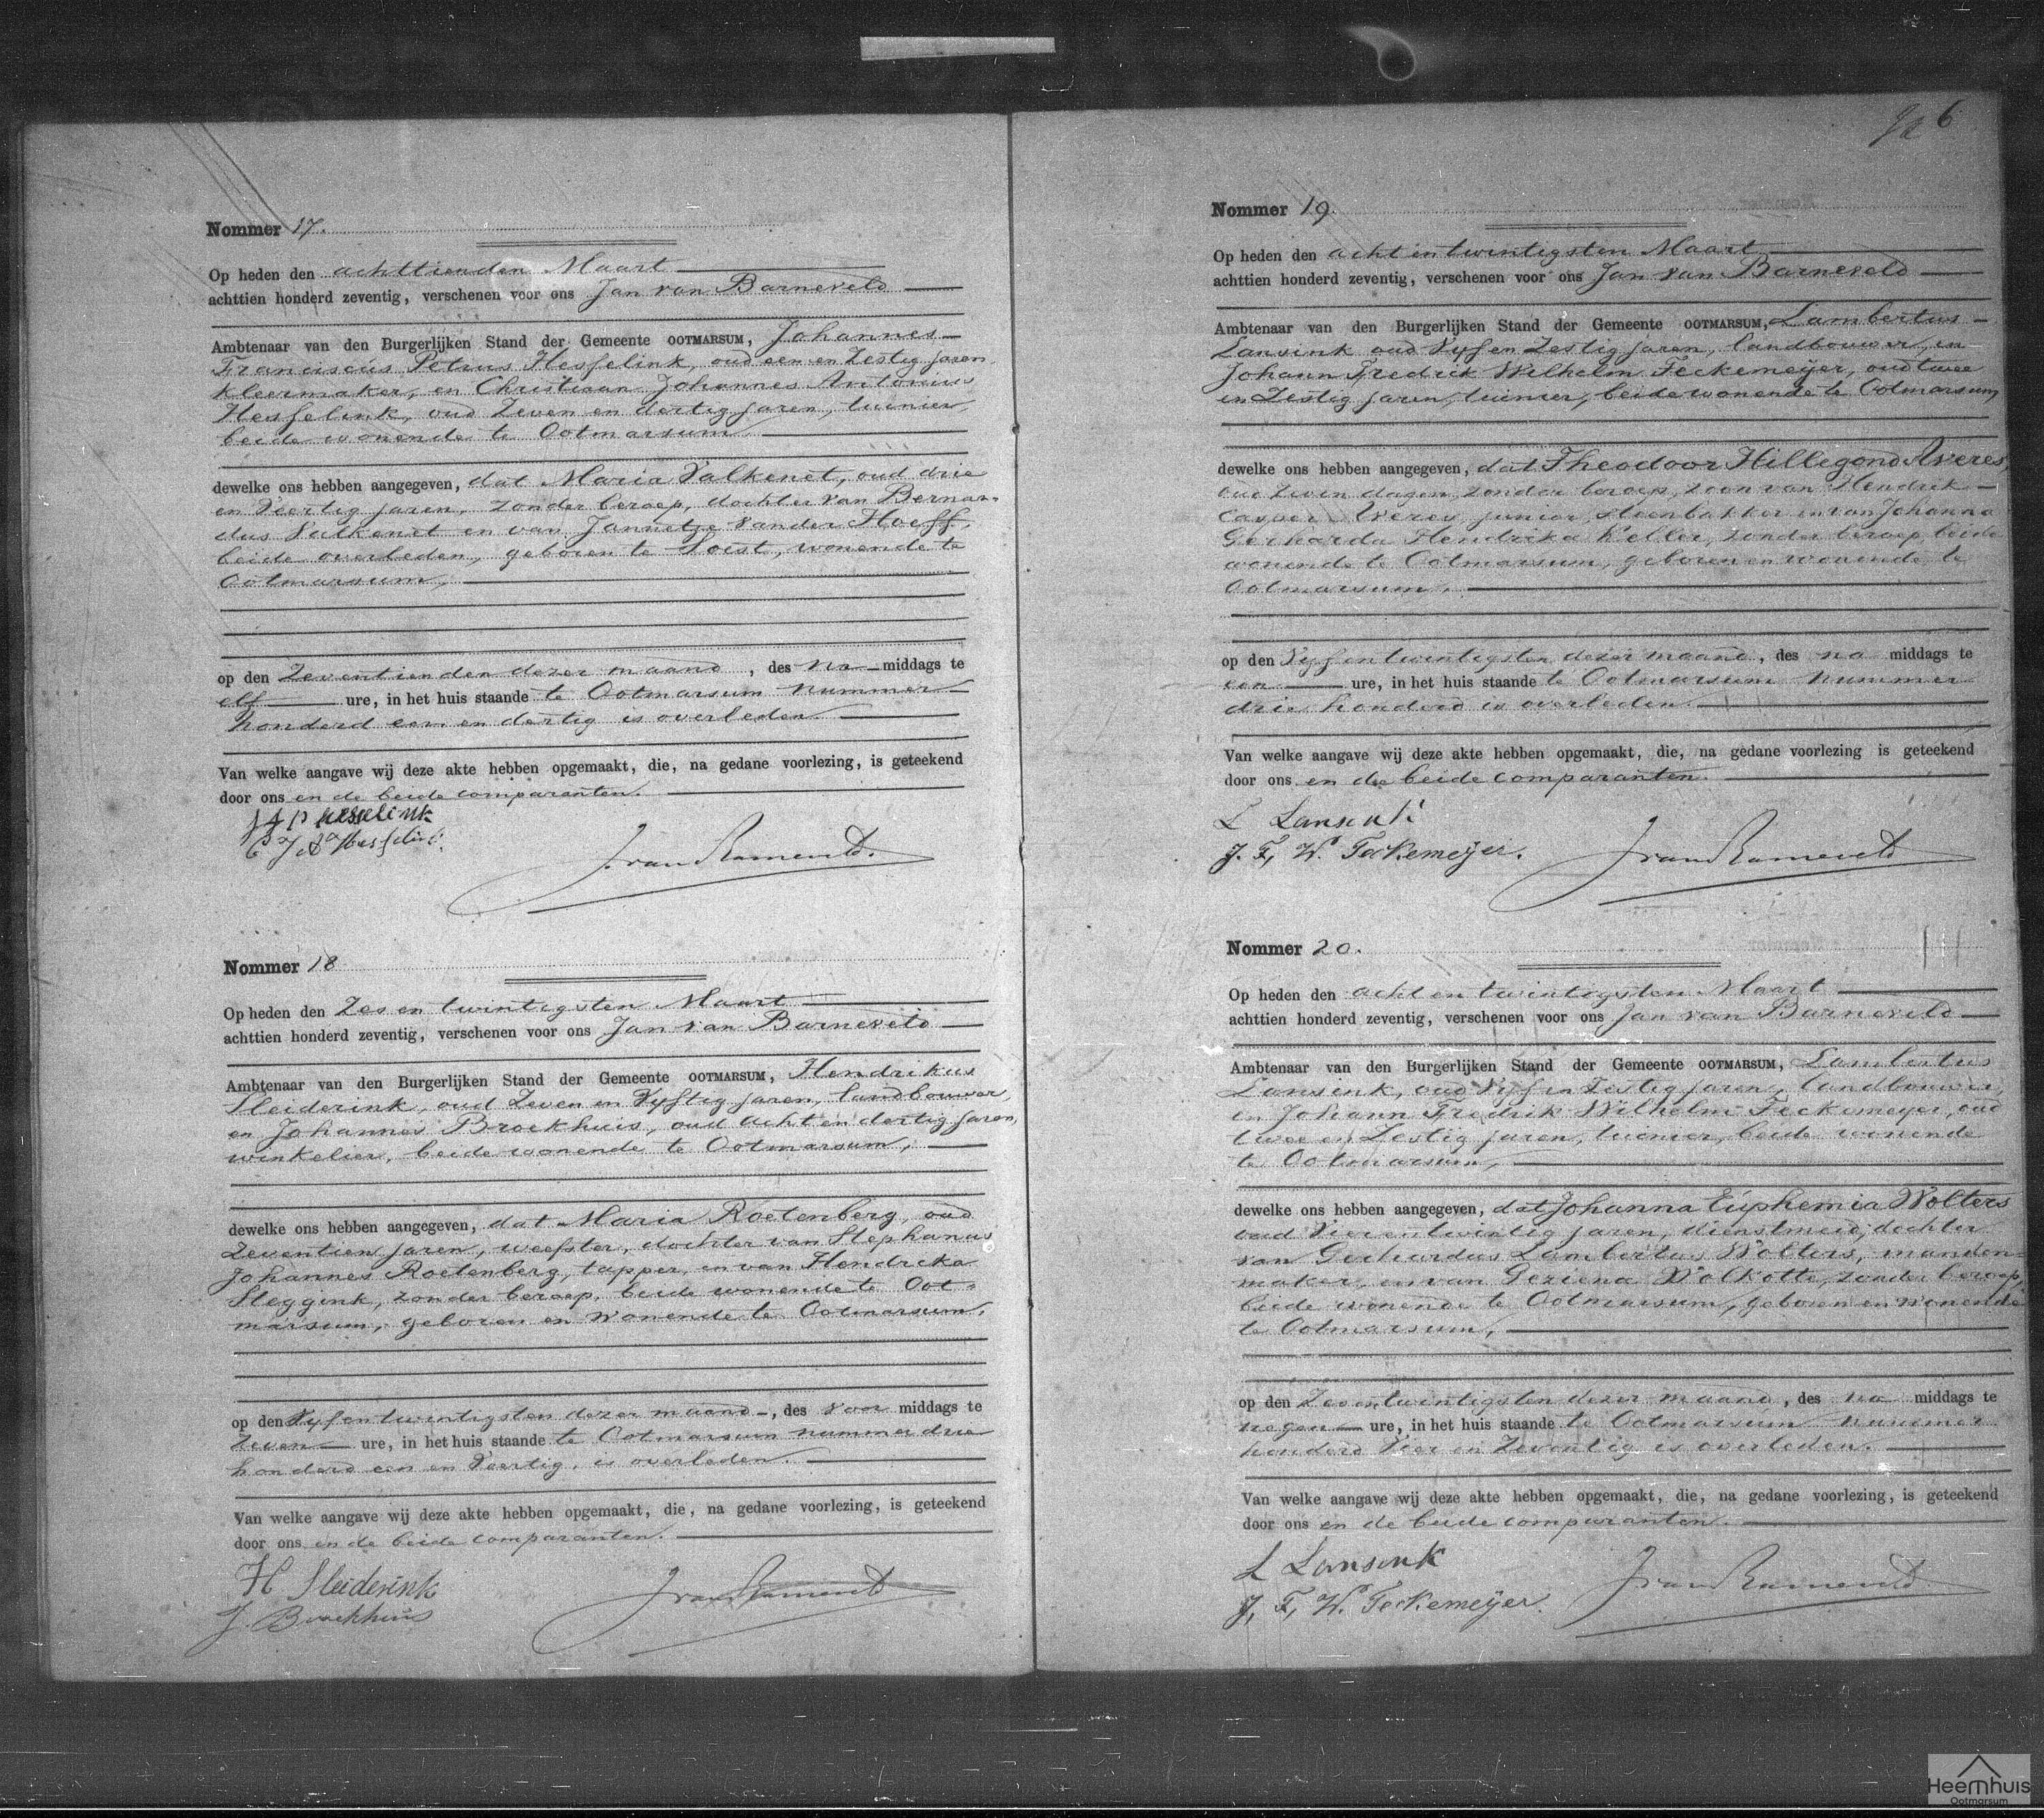 Nommer 17.
Op heden den achttienden Maart
achttien honderd zeventig, verschenen voor ons Jan van Barneveld
Ambtenaar van den Burgerlijken Stand der Gemeente OOTMARSUM, Johannes
Franciscus Petrus Hesselink, oud een en Zestig jaren
kleermaker, en Christiaan Johannes Antonius
Hesselink, oud Zeven en dertig jaren, tuinier,
beide wonende te Ootmarsum
dewelke ons hebben aangegeven, dat Maria Valkenet, oud drie
en Veertig jaren, zonder beroep, dochter van Bernar-
dus Valkenet en van Jannetze van der Hoeff,
beide overleden, geboren te Soest, wonende te
Ootmarsum,
op den Zeventienden dezer maand, des na middags te
elf ure, in het huis staande te Ootmarsum nummer
honderd een en dertig is overleden.
Van welke aangave wij deze akte hebben opgemaakt, die, na gedane voorlezing, is geteekend
door ons en de beide comparanten.
Hesselink
C J A Hesselink
J van Barneveld.
Nommer 18
Op heden den Zes en twintigsten Maart
achttien honderd zeventig, verschenen voor ons Jan van Barneveld
Ambtenaar van den Burgerlijken Stand der Gemeente OOTMARSUM, Hendrikus
Sleiderink, oud Zeven en Vyftig jaren, landbouwer,
en Johannes Broekhuis, oud acht en dertig jaren,
winkelier, beide wonende te Ootmarsum,
dewelke ons hebben aangegeven, dat Maria Roetenberg, oud
Zeventien jaren, weefster, dochter van Stephanus
Johannes Roetenberg, tapper, en van Hendrika
Steggink, zonder beroep, beide wonende te Oot-
marsum, geboren en wonende te Ootmarsum,
op den Vyf en twintigsten dezer maand, des voor middags te
Zeven ure, in het huis staande te Ootmarsum nummer drie
honderd een en Veertig, is overleden.
Van welke aangave wij deze akte hebben opgemaakt, die, na gedane voorlezing, is geteekend
door ons en de beide comparanten.
H Sleiderink
J. Broekhuis
J van Barneveld
6
Nommer 19.
Op heden den acht en twintigsten Maart
achttien honderd zeventig, verschenen voor ons Jan van Barneveld
Ambtenaar van den Burgerlijken Stand der Gemeente OOTMARSUM, Lambertus
Lansink oud Vyf en Zestig jaren, landbouwer, en
Johann Fredrik Wilhelm Feckemeyer, oud twee
en Zestig jaren, tuinier, beide wonende te Ootmarsum
dewelke ons hebben aangegeven, dat Theodoor Hillegond Averes,
oud Zeven dagen, zonder beroep, zoon van Hendrik
Casper Averes junior, steenbakker en van Johanna
Gerharda Hendrika Keller, zonder beroep, beide
wonende te Ootmarsum, geboren en wonende te
Ootmarsum,
op den Vyf en twintigsten dezer maand, des na middags te
een ure, in het huis staande te Ootmarsum nummer
drie honderd is overleden.
Van welke aangave wij deze akte hebben opgemaakt, die, na gedane voorlezing is geteekend
door ons en de beide comparanten.
L Lansink
J. F. W. Feckemeÿer.
J van Barneveld
Nommer 20.
Op heden den acht en twintigsten Maart
achttien honderd zeventig, verschenen voor ons Jan van Barneveld
Ambtenaar van den Burgerlijken Stand der Gemeente OOTMARSUM, Lambertus
Lansink, oud Vyf en Zestig jaren, landbouwer,
en Johann Fredrik Wilhelm Feckemeyer, oud
twee en Zestig jaren, tuinier, beide wonende
te Ootmarsum,
dewelke ons hebben aangegeven, dat Johanna Euphemia Wolters
oud Vier en twintig jaren, dienstmeid, dochter
van Gerhardus Lambertus Wolters, manden-
maker, en van Geziena Wolkotte, zonder beroep,
beide wonende te Ootmarsum, geboren en wonende
te Ootmarsum,
op den Zeventwintigsten dezer maand, des na middags te
negen ure, in het huis staande te Ootmarsum nummer
honderd Vier en Zeventig is overleden.
Van welke aangave wij deze akte hebben opgemaakt, die, na gedane voorlezing, is geteekend
door ons en de beide comparanten.
L Lansink
J. F. W. Feckemeÿer.
J van Barneveld
Heemhuis
Ootmarsum